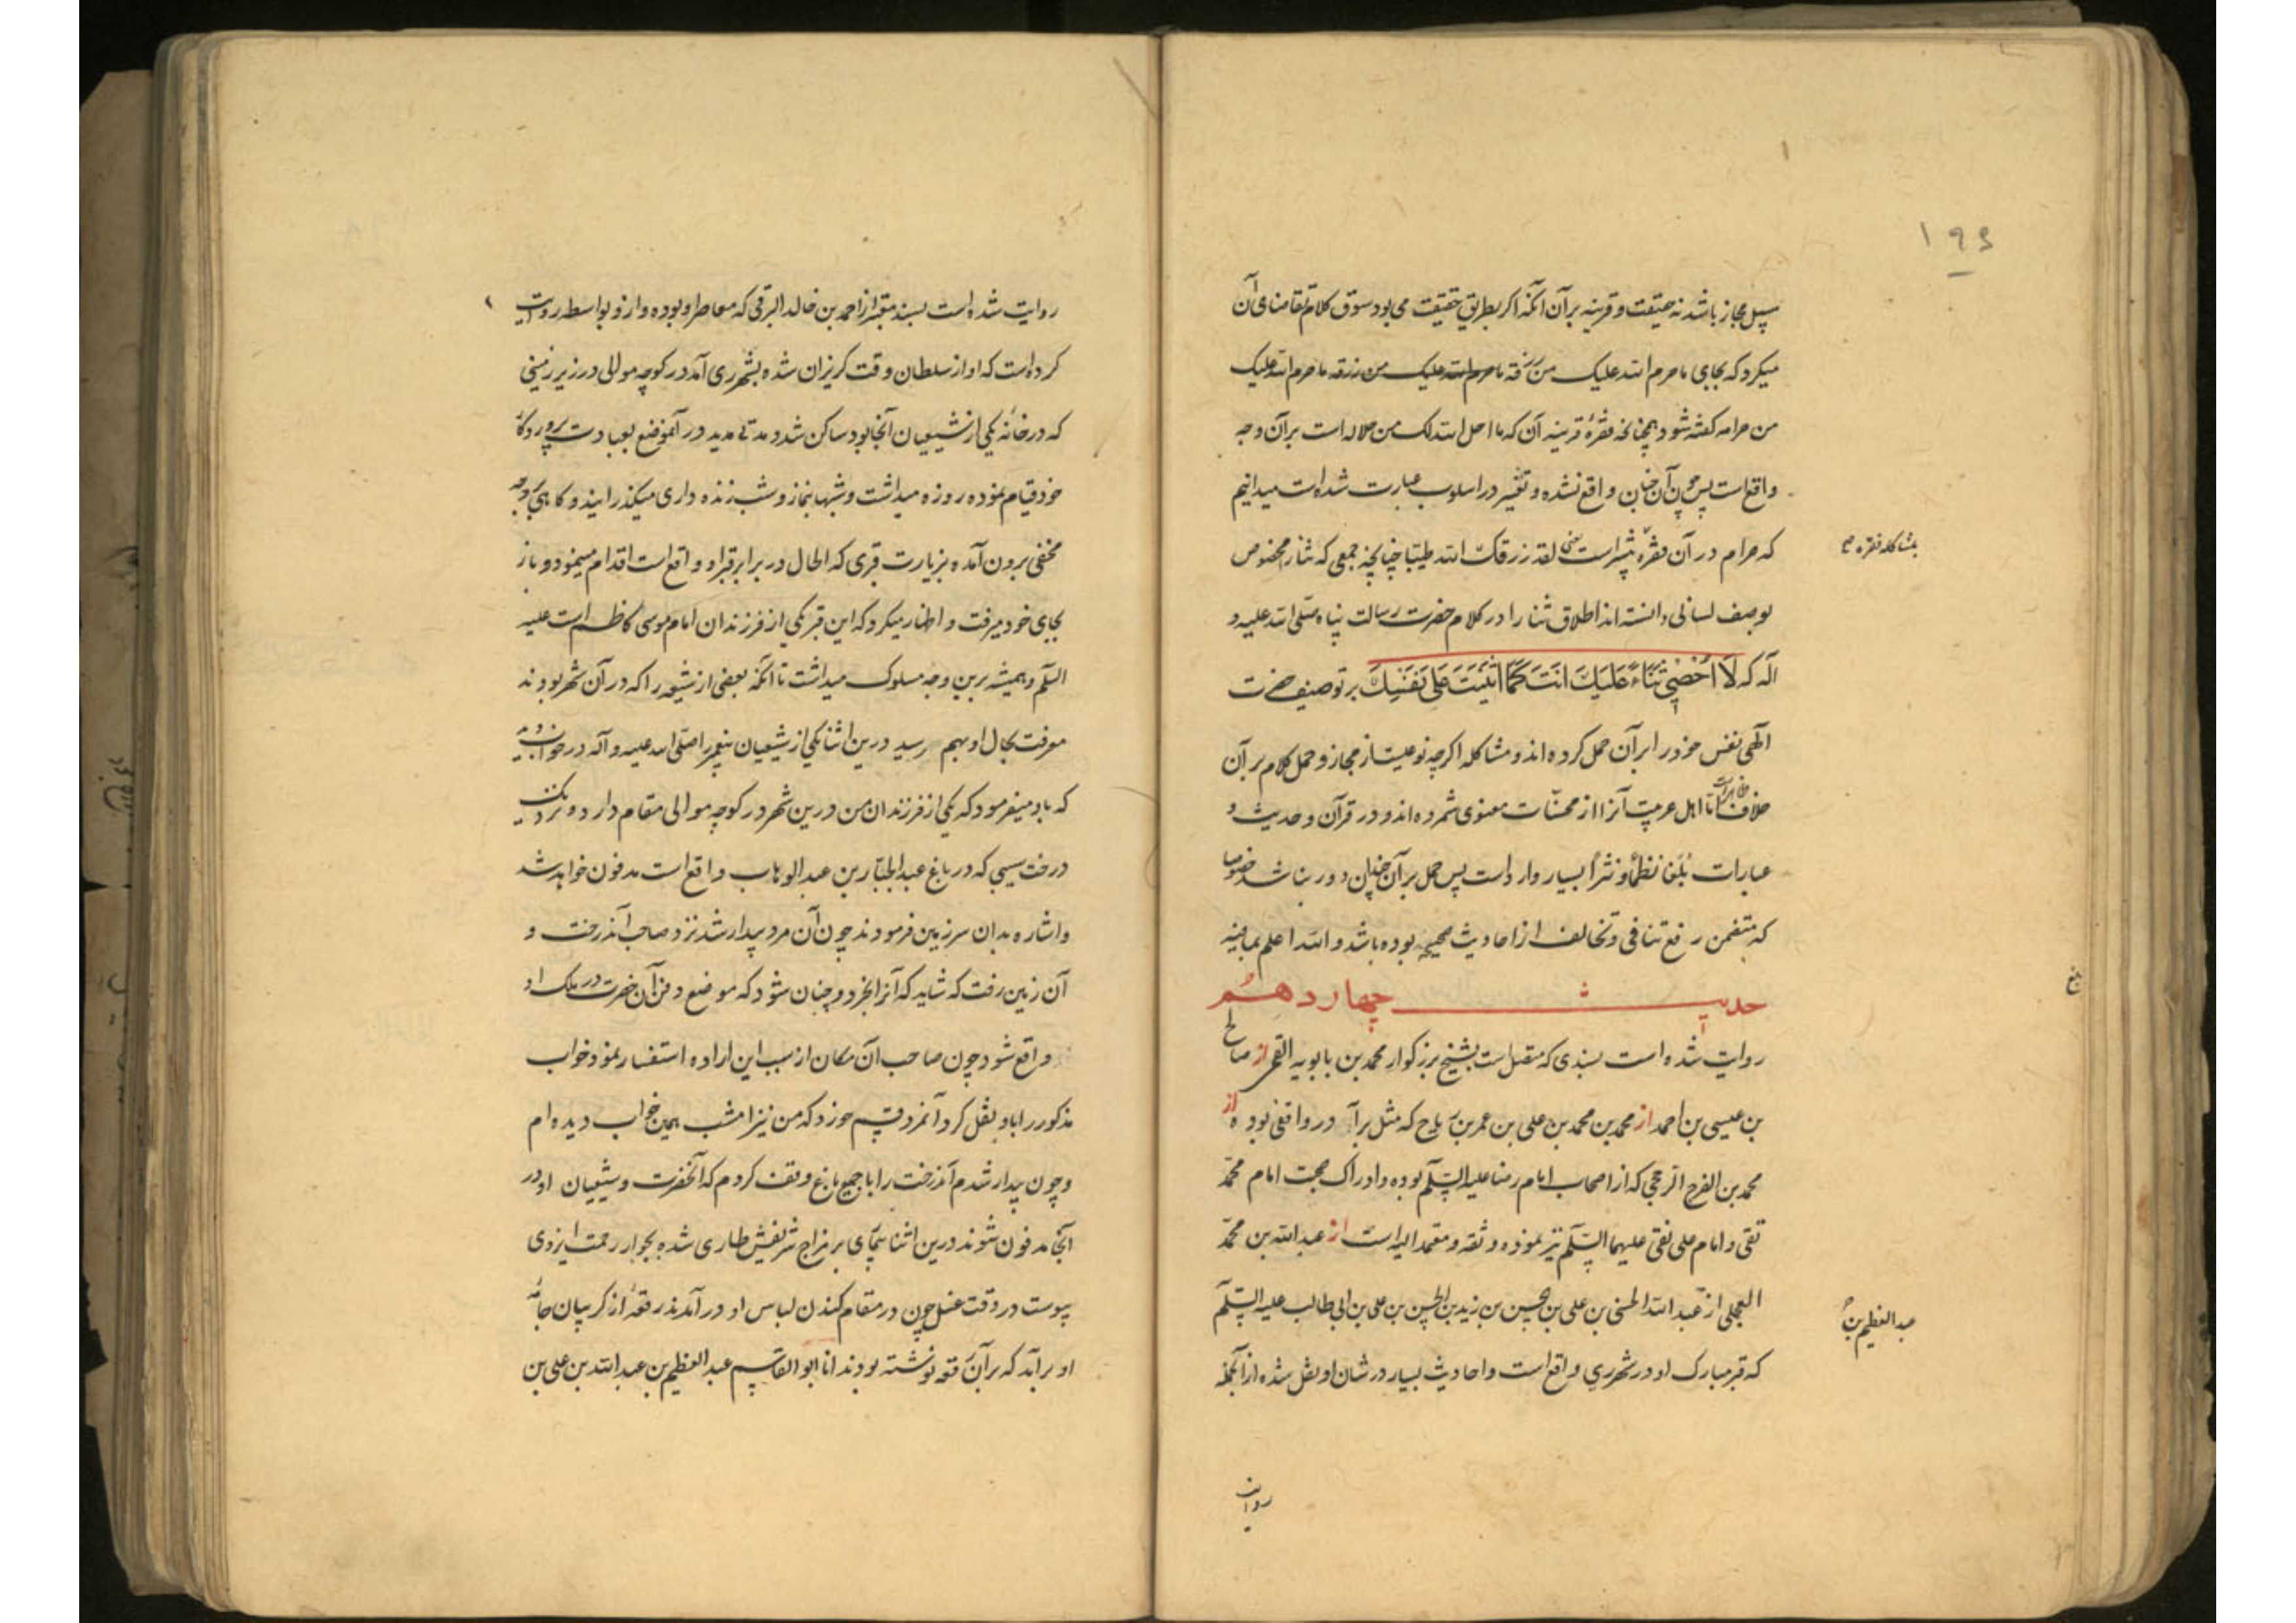 ۱۹۶
سبیل مجاز باشد نه حقیقت و قرینه برآن آنکه اکر بطریق حقیقت می بود سوق کلام تقاضای آن
میکرد که بجای ما حرم الله علیک من رزقه ما حرم الله علیک من رزقه ما حرم الله علیک
من حرامه کفته شود همچنانچه فقرهٔ قرینه آن که ما احل الله لک من حلاله است برآن وجه
واقع است پس چون آن چنان واقع نشده و تغییر در اسلوب عبارت شده است میدانیم
که حرام در آن فقره یعنی لقد رزقک الله طیبا چنانچه جمعی که ثنا را مخصوص
بمشاکله فقره
بوصف لسانی دانسته اند اطلاق ثنا را در کلام حضرت رسالت پناه صلی الله علیه و
آله که لَا اُحْصِی ثَنَاءً عَلَیْکَ اَنْتَ کَمَا اَثْنَیْتَ عَلَی نَفْسِکَ بر توصیف حضرت
الهی نفس خود را برآن حمل کرده اند و مشاکله اکرچه نوعیست از مجاز و حمل کلام برآن
خلاف ظاهر است اما اهل عربیت آنرا از محسنات معنوی شمرده اند و در قرآن و حدیث و
عبارات بلغا نظماً و نثراً بسیار وارد است پس حمل برآن چندان دور نباشد خصوصا
که متضمن رفع تنافی و تخالف از احادیث صحیحه بوده باشد و الله اعلم بما فیه
حدیث چهاردهم
روایت شده است بسندی که متصل است بشیخ بزرکوار محمد بن بابویه القمی از صالح
بن عیسی بن احمد از محمد بن محمد بن علی بن عمر بن رباح که مثل در واقفی بوده از
محمد بن الفرج الرخجی که از اصحاب امام رضا علیه السلم بوده و ادراک صحبت امام محمد
تقی و امام علی نقی علیهما السلم نیز نموده و ثقه و معتمد الیه است از عبد الله بن محمد
العجلی از عبد الله الحسنی بن علی بن الحسین بن زید بن الحسن بن علی بن ابی طالب علیه السلم
عبد العظیم بن
که قبر مبارک او در شهر ری واقع است و احادیث بسیار در شان او نقل شده از آنجمله
روایت
روایت شده است بسند معتبر از احمد بن خالد البرقی که معاصر او بوده و از و بواسطه روایت
کرده است که او از سلطان وقت کریزان شده بشهر ری آمد در کوچه موالی در زیر زمینی
که در خانه یکی از شیعیان آنجا بود ساکن شد و مدتی مدید در آنموضع بعبادت پروردکار
خود قیام نموده روزه میداشت و شبها بنماز و شب زنده داری میکذرانید و کاهی بر وجه
مخفی برون آمده بزیارت قبری که الحال در برابر قبر او واقع است اقدام مینمود و باز
بجای خود میرفت و اظهار میکرد که این قبر یکی از فرزندان امام موسی کاظم است علیه
السلم و همیشه برین وجه سلوک میداشت تا آنکه بعضی از شیعه را که در آن شهر بودند
معرفت بحال او بهم رسید درین اثنا یکی از شیعیان پیغمبر را صلی الله علیه و آله در خواب دید
که باو میفرمود که یکی از فرزندان من درین شهر در کوچه موالی مقام دارد و نزدیک
درخت سیبی که در باغ عبد الجبار بن عبد الوهاب واقع است مدفون خواهد شد
و اشاره بدان سرزمین فرمودند چون آن مرد بیدار شد نزد صاحب آندرخت و
آن زمین رفت که شاید که آنرا بخرد و چنان شود که موضع دفن آن حضرت در ملک او
واقع شود چون صاحب آن مکان از سبب این اراده استفسار نمود خواب
مذکور را باو نقل کرد آنمرد قسم خورد که من نیز امشب همین خواب دیده ام
و چون بیدار شدم آندرخت را با جمیع باغ وقف کردم که آنحضرت و شیعیان او در
آنجا مدفون شوند درین اثنا بیماری بر مزاج شریفش طاری شده بجوار رحمت ایزدی
پیوست در وقت غسل چون در مقام کندن لباس او درآمدند رقعه از کریبان جامه
او برآمد که برآن رقعه نوشته بودند انا ابو القاسم عبد العظیم بن عبد الله بن علی بن